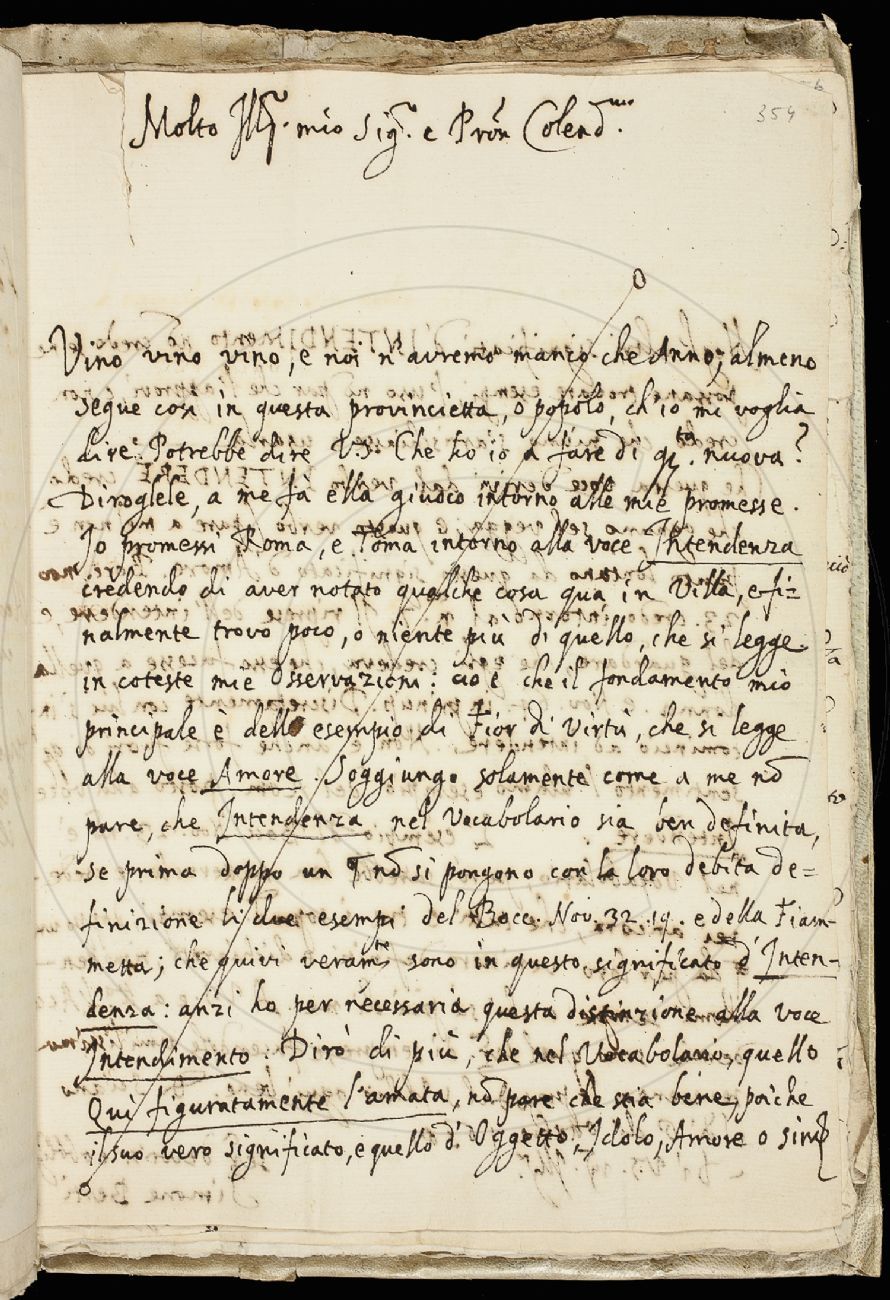 354
Molto Ill.re mio Sig.re e Pron Colend.mo
Vino vino vino, e noi n'avremo manco che Anno; almeno
segue così in questa provincietta, o popolo, ch'io mi voglia
dire. Potrebbe dire V.S. Che ho io a fare di q.ta nuova?
Diroglele, a me fa ella giuoco intorno alle mie promesse.
Io promessi Roma, e Toma intorno alla voce Intendenza
credendo di aver notato qualche cosa quà in Villa, e fi=
nalmente trovo poco, o niente più di quello, che si legge
in coteste mie Osservazioni: ciò è che il fondamento mio
principale è dello esempio di Fior di Virtù, che si legge
alla voce Amore. Soggiungo solamente come a me nō
pare, che Intendenza nel Vocabolario sia ben definita,
se prima doppo un ¶ nō si pongono con la loro debita de=
finizione li due esempi del Bocc. Nov. 32. 19. e della Fiam-
metta; che quivi veram.te sono in questo significato d'Inten-
denza: anzi ho per necessaria questa distinzione alla voce
Intendimento. Dirò di più, che nel Vocabolario, quello
Qui figuratamente l'amata, nō pare che stia bene, poiche
il suo vero significato, è quello d'Oggetto, Idolo, Amore o